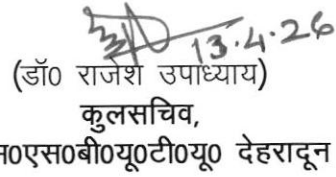 13.4.26
(डॉ0 राजेश उपाध्याय)
कुलसचिव,
0एस0बी0यू0टी0यू0 देहरादून